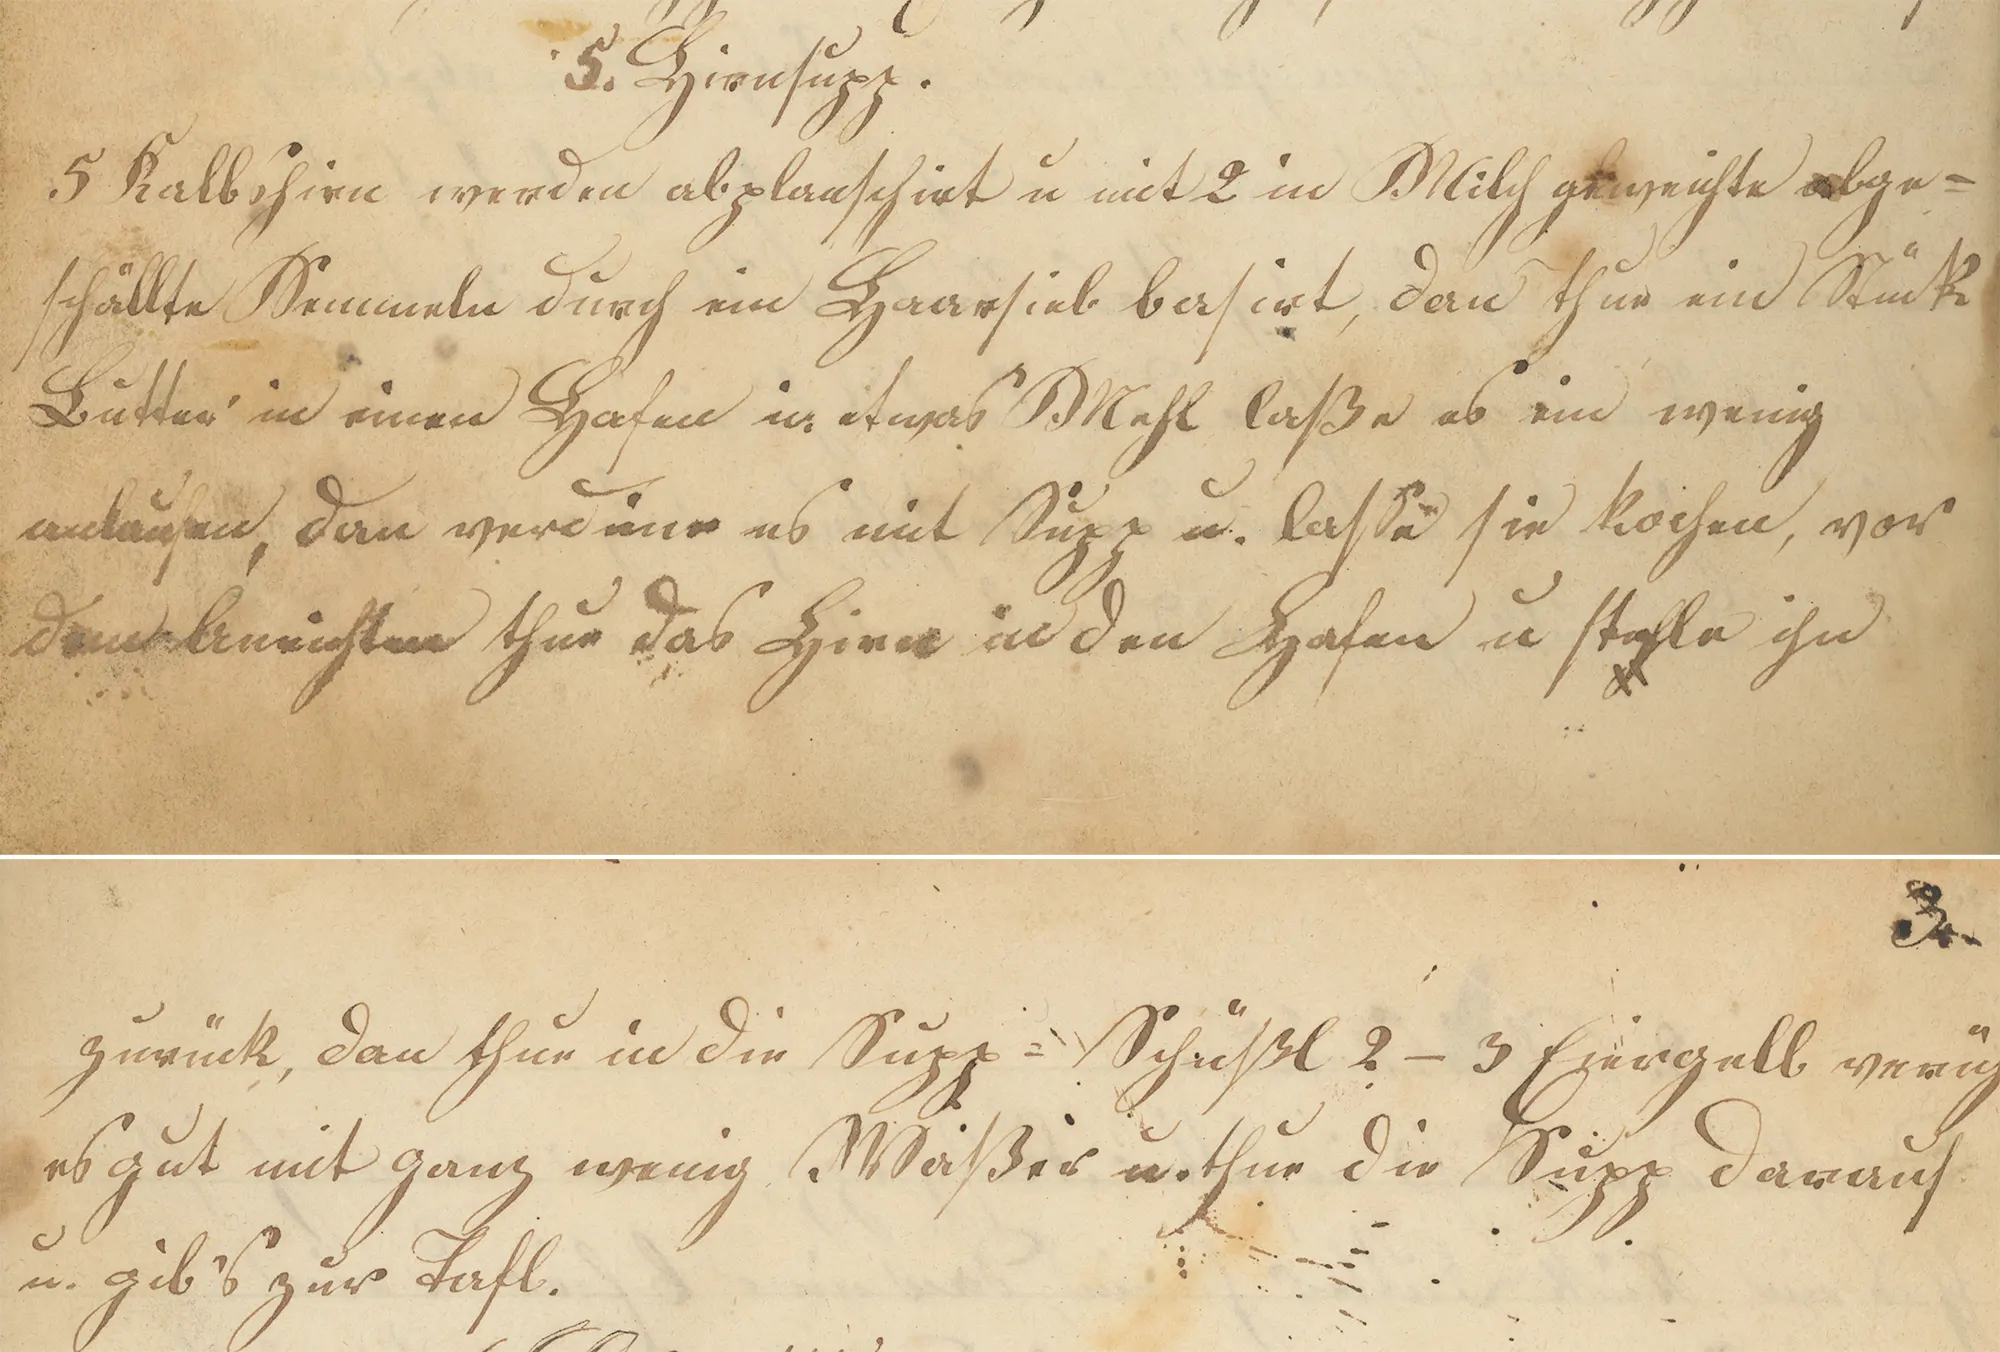 5. Hirnsupp.
5 Kalbshirn werden abplanschirt u mit 2 in Milch geweichte abge=
schällte Semmeln durch ein Haarsieb basirt, dan thue ein Stück
Butter in einen Hafen u. etwas Mehl laße es ein wenig
anlaufen, dan verdüne es mit Supp u. lasse sie kochen, vor
dem Anrichten thue das Hirn in den Hafen u stelle ihn
3.
zurück, dan thue in die Supp= Schüßl 2 – 3 Eiergelb verrühr
es gut mit ganz wenig Waßer u. thue die Supp darauf
u. gib's zur Tafl.